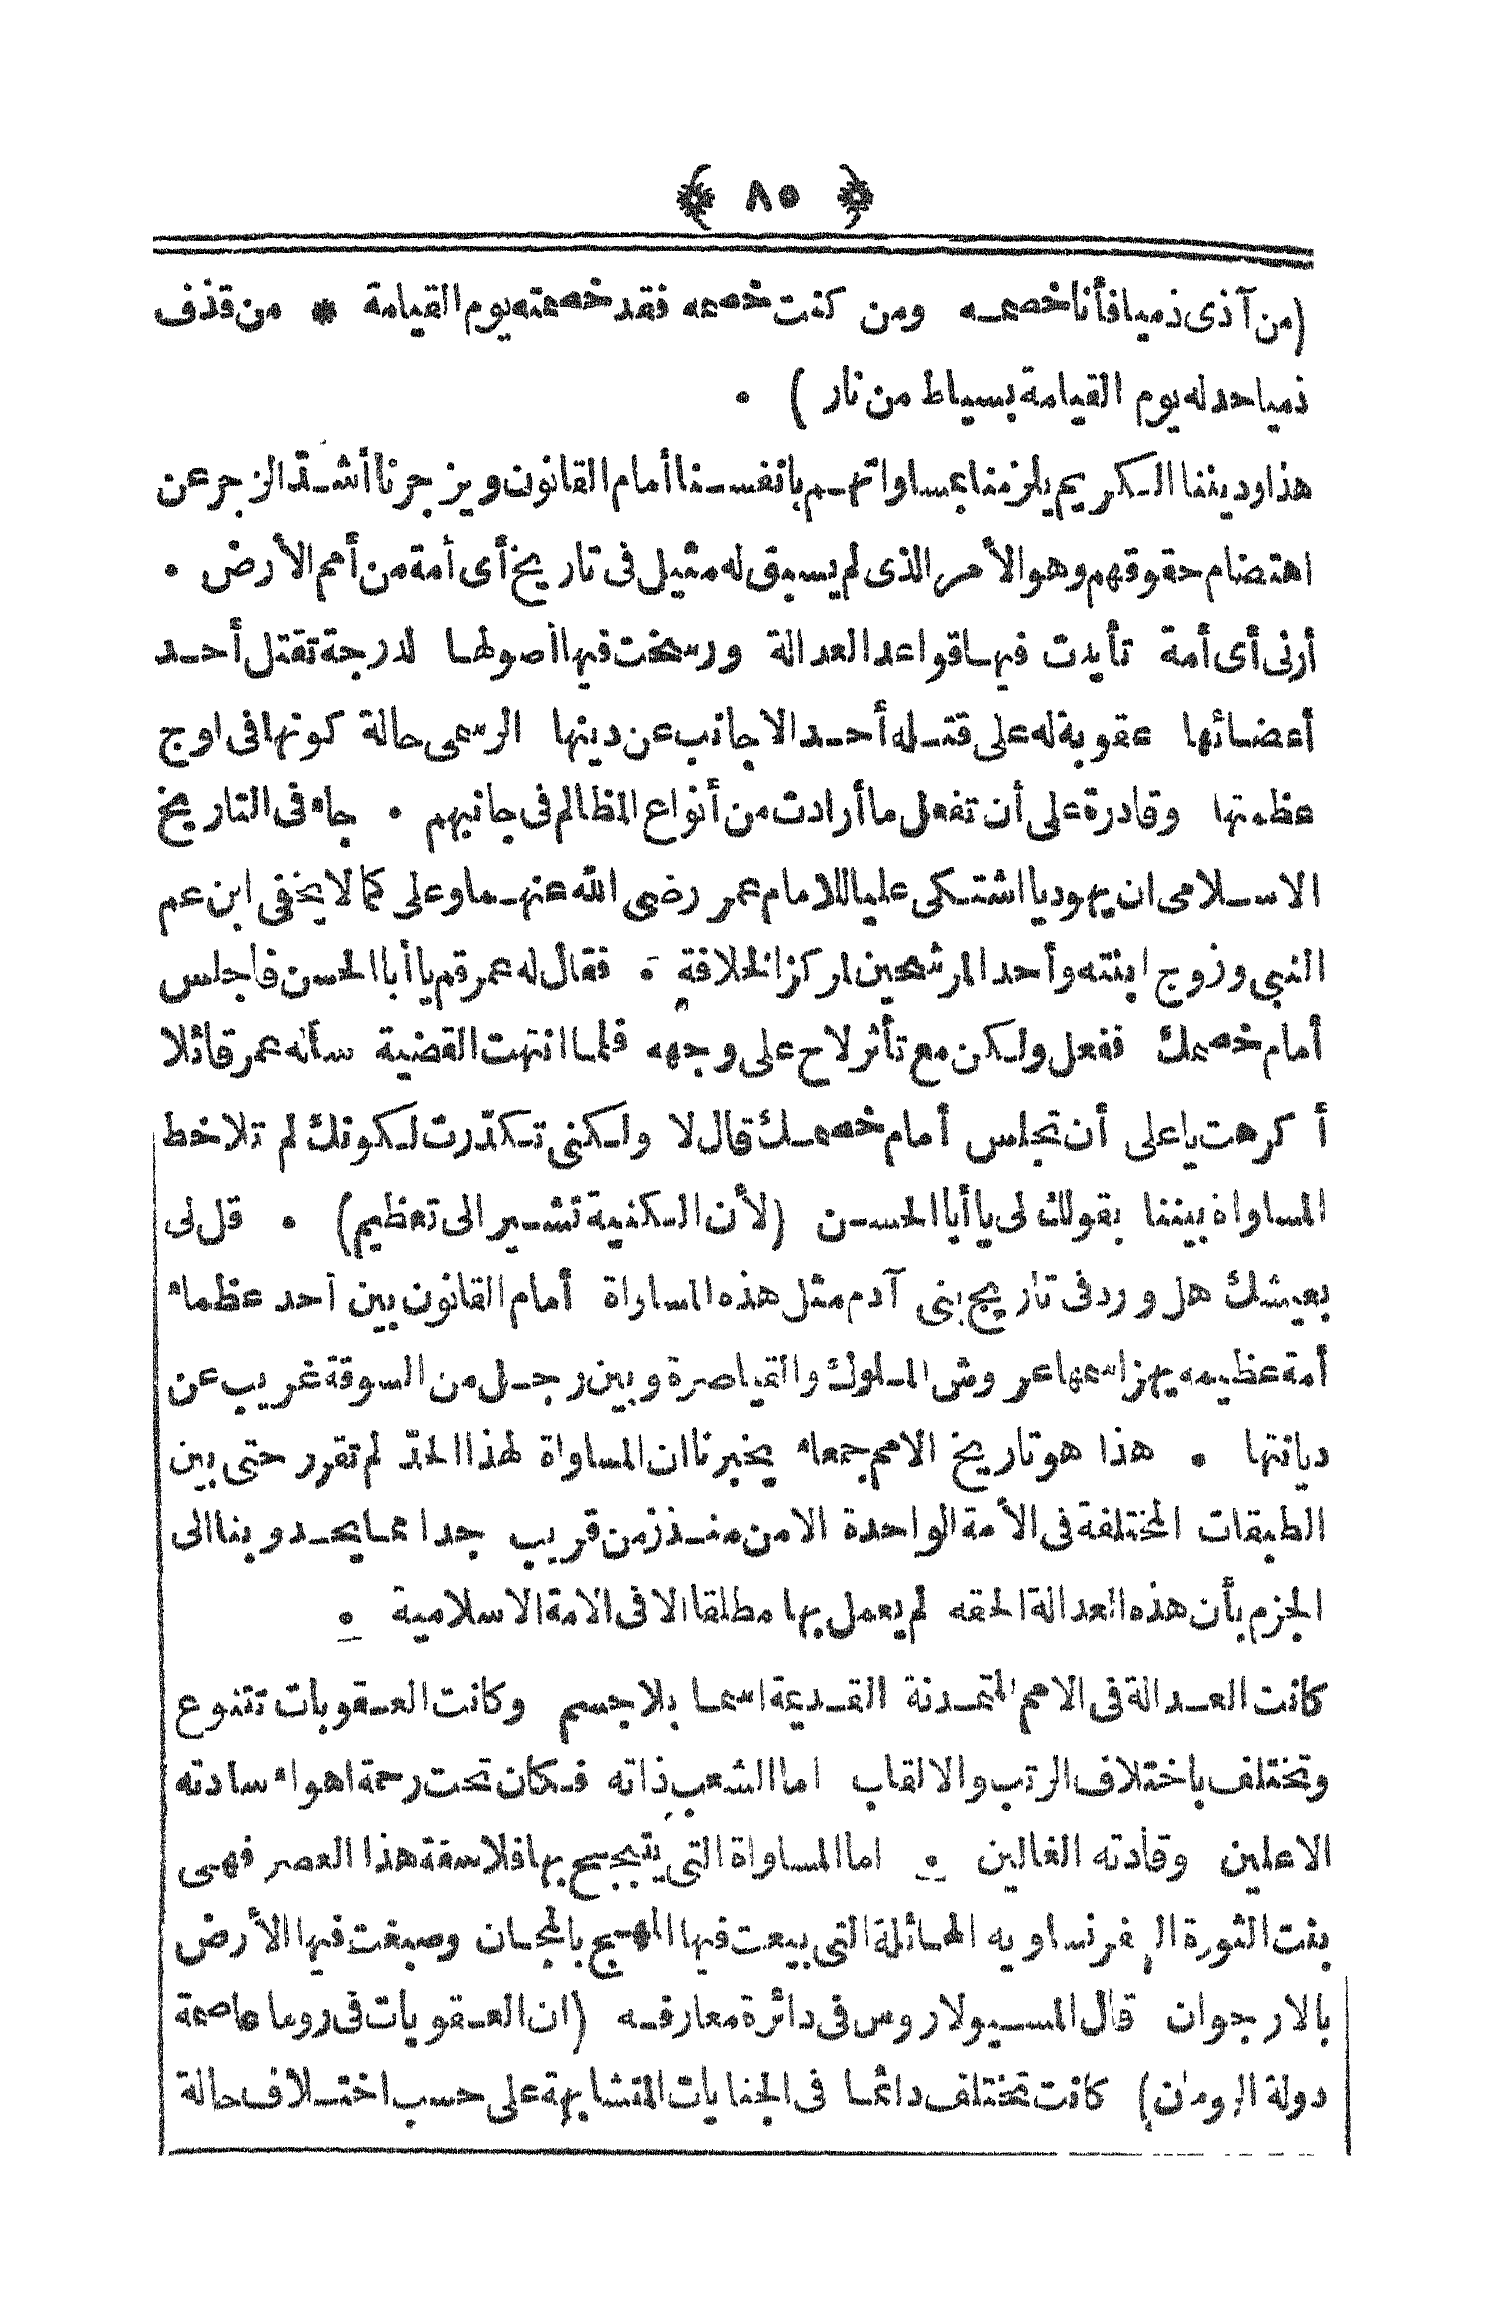 ﴿ ٨٥ ﴾
(من آذى ذميا فأنا خصمه ومن كنت خصمه فقد خصمته يوم القيامة * من قذف
ذميا حد له يوم القيامة بسياط من نار ) .
هذا وديننا الكريم يلزمنا بمساواتهم بانفسنا أمام القانون ويزجرنا أشدّ الزجر عن
اهتضام حقوقهم وهو الأمر الذى لم يسبق له مثيل فى تاريخ أى أمة من أمم الأرض .
أرنى أى أمة تأيدت فيها قواعد العدالة ورسخت فيها أصولها لدرجة تقتل أحد
أعضائها عقوبة له على قتله أحد الاجانب عن دينها الرسمى حالة كونها فى اوج
عظمتها وقادرة على أن تفعل ما أرادت من أنواع المظالم فى جانبهم . جاء فى التاريخ
الاسلامى ان يهوديا اشتكى عليا للامام عمر رضى الله عنهما وعلى كما لا يخفى ابن عم
النبى وزوج ابنته وأحد المرشحين لمركز الخلافة . فقال له عمر قم يا أبا الحسن فاجلس
أمام خصمك ففعل ولكن مع تأثر لاح على وجهه فلما انتهت القضية سأله عمر قائلا
أكرهت يا على أن تجلس أمام خصمك قال لا ولكنى تكدّرت لكونك لم تلاحظ
المساواة بيننا بقولك لى يا أبا الحسن (لأن الكنية تشير الى تعظيم) . قل لى
بعيشك هل ورد فى تاريخ بنى آدم مثل هذه المساواة أمام القانون بين أحد عظماء
أمة عظيمه يهز اسمها عروش الملوك والقياصرة وبين رجل من السوقة غريب عن
ديانتها . هذا هو تاريخ الامم جمعاء يخبرنا ان المساواة لهذا الحدّ لم تقرر حتى بين
الطبقات المختلفة فى الأمة الواحدة الا من منذ زمن قريب جدا مما يحدو بنا الى
الجزم بأن هذه العدالة الحقه لم يعمل بها مطلقا الا فى الامة الاسلامية .
كانت العدالة فى الامم المتمدنة القديمة اسما بلا جسم وكانت العقوبات تتنوع
وتختلف باختلاف الرتب والالقاب اما الشعب ذاته فكان تحت رحمة اهواء سادته
الاعلين وقادته الغالين . اما المساواة التى يتبجح بها فلاسفة هذا العصر فهى
بنت الثورة الفرنساويه الهائلة التى بيعت فيها المهج بالمجان وصبغت فيها الأرض
بالارجوان قال المسيو لاروس فى دائرة معارفه (ان العقوبات فى روما عاصمة
دولة الرومان) كانت تختلف دائما فى الجنايات المتشابهة على حسب اختلاف حالة